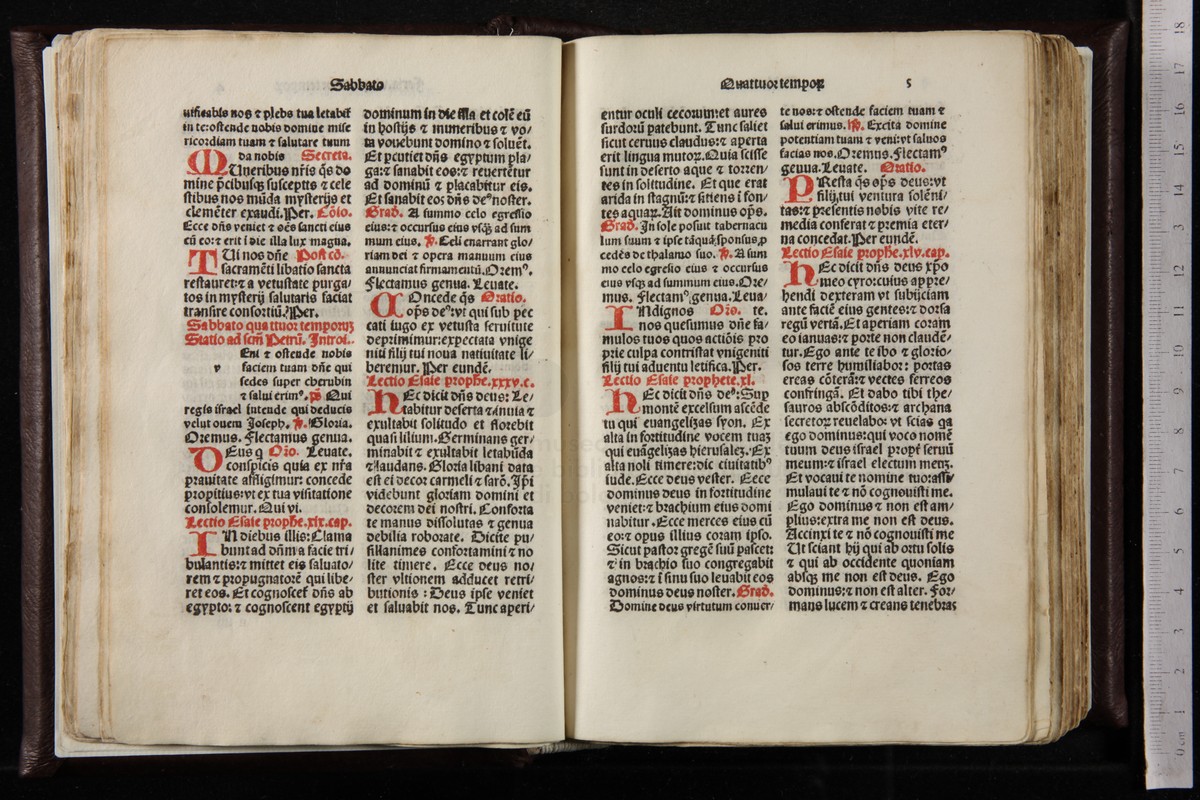 Sabbato
uificabis nos ⁊ plebs tua letabit̃
in te: ostende nobis domine mise
ricordiam tuam ⁊ salutare tuum
da nobis Secreta.
MUneribus nr̃is q̃s do
mine p̃cibusqꝫ susceptis ⁊ cele
stibus nos mũda mysterijs ⁊ et
clemẽter exaudi. Per. Cõio.
Ecce dñs veniet ⁊ oẽs sancti eius
cũ eo: ⁊ erit i die illa lux magna.
TUi nos dñe Post cõ.
sacramẽti libatio sancta
restauret: ⁊ a vetustate purga/
tos in mysterij salutaris faciat
transire consortiũ. Per.
Sabbato quattuor temporuꝫ
Statio ad scm̃ Petrũ. Introi.
Eni ⁊ ostende nobis
v faciem tuam dñe qui
sedes super cherubin
⁊ salui erimꝰ. ps̃. Qui
regis israel intende qui deducis
velut ouem Joseph. ℣. Gloria.
Oremus. Flectamus genua.
DEus q Or̃o. Leuate.
conspicis quia ex nr̃a
prauitate affligimur: concede
propitius: vt ex tua visitatione
consolemur. Qui vi.
Lectio Esaie prophe. xix. cap.
IN diebus illis: Clama
bunt ad dñm a facie tri/
bulantis: ⁊ mittet eis saluato/
rem ⁊ propugnatorẽ qui libe/
ret eos. Et cognoscet̃ dñs ab
egypto: ⁊ cognoscent egyptij
dominum in die illa et colẽt eũ
in hostijs ⁊ muneribus ⁊ vo/
ta vouebunt domino ⁊ soluẽt.
Et pcutiet dñs egyptum pla/
ga: ⁊ sanabit eos: ⁊ reuertẽtur
ad dominũ ⁊ placabitur eis.
Et sanabit eos dñs deꝰ noster.
Grad. A summo celo egressio
eius: ⁊ occursus eius vsqꝫ ad sum
mum eius. ℣. Celi enarrant glo/
riam dei ⁊ opera manuum eius
annunciat firmamentũ. Oremꝰ.
Flectamus genua. Leuate.
COncede q̃s Oratio.
op̃s deꝰ: vt qui sub pec
cati iugo ex vetusta seruitute
deprimimur: expectata vnige
niti filij tui noua natiuitate li/
beremur. Per eundẽ.
Lectio Esaie prophe. xxxv. c.
HEc dicit dñs deus: Le/
tabitur deserta ⁊ inuia ⁊
exultabit solitudo et florebit
quasi lilium. Germinans ger/
minabit ⁊ exultabit letabũda
⁊ laudans. Gloria libani data
est ei decor carmeli ⁊ sarõ. Ip̃i
videbunt gloriam domini et
decorem dei nostri. Conforta
te manus dissolutas ⁊ genua
debilia roborate. Dicite pu/
sillanimes confortamini ⁊ no
lite timere. Ecce deus no/
ster vltionem adducet retri/
butionis: Deus ipse veniet
et saluabit nos. Tunc aperi/
Quattuor tempoꝝ 5
entur oculi cecorum: et aures
surdorũ patebunt. Tunc saliet
sicut ceruus claudus: ⁊ aperta
erit lingua mutoꝝ. Quia scisse
sunt in deserto aque ⁊ torren/
tes in solitudine. Et que erat
arida in stagnũ: ⁊ sitiens i fon/
tes aquaꝝ. Ait dominus op̃s.
Grad. In sole posuit tabernacu
lum suum ⁊ ipse tãquã sponsus p
cedẽs de thalamo suo. ℣. A sum
mo celo egressio eius ⁊ occursus
eius vsqꝫ ad summum eius. Ore/
mus. Flectamꝰ genua. Leua/
INdignos Or̃o. te.
nos quesumus dñe fa/
mulos tuos quos actiõis pro
prie culpa contristat vnigeniti
filij tui aduentu letifica. Per.
Lectio Esaie prophete. xl.
HEc dicit dñs deꝰ: Sup
montẽ excelsum ascẽde
tu qui euangelizas syon. Ex
alta in fortitudine vocem tuaꝫ
qui euãgelizas hierusaleꝫ. Ex
alta noli timere: dic ciuitatibꝰ
iude. Ecce deus vester. Ecce
dominus deus in fortitudine
veniet: ⁊ brachium eius domi
nabitur. Ecce merces eius cũ
eo: ⁊ opus illius coram ipso.
Sicut pastor gregẽ suũ pascet:
⁊ in brachio suo congregabit
agnos: ⁊ i sinu suo leuabit eos
dominus deus noster. Grad.
Domine deus virtutum conuer/
te nos: ⁊ ostende faciem tuam ⁊
salui erimus. ℣. Excita domine
potentiam tuam ⁊ veni: vt saluos
facias nos. Oremus. Flectamꝰ
genua. Leuate. Oratio.
PResta q̃s op̃s deus: vt
filij tui ventura solẽni/
tas: ⁊ presentis nobis vite re/
media conferat ⁊ premia eter/
na concedat. Per eundẽ.
Lectio Esaie prophe. xlv. cap.
HEc dicit dñs deus xpo
meo cyro: cuius appre/
hendi dexteram vt subijciam
ante faciẽ eius gentes: ⁊ dorsa
regũ vertã. Et aperiam coram
eo ianuas: ⁊ porte non claudẽ/
tur. Ego ante te ibo ⁊ glorio/
sos terre humiliabo: portas
ereas cõterã: ⁊ vectes ferreos
confringã. Et dabo tibi the/
sauros abscõditos: ⁊ archana
secretoꝝ reuelabo: vt scias qꝛ
ego dominus: qui voco nomẽ
tuum deus israel propt̃ seruũ
meum: ⁊ israel electum meuꝫ.
Et vocaui te nomine tuo: assi/
mulaui te ⁊ nõ cognouisti me.
Ego dominus ⁊ non est am/
plius: extra me non est deus.
Accinxi te ⁊ nõ cognouisti me
Ut sciant hij qui ab ortu solis
⁊ qui ab occidente quoniam
absqꝫ me non est deus. Ego
dominus: ⁊ non est alter. For/
mans lucem ⁊ creans tenebras
0 cm 1 2 3 4 5 6 7 8 9 10 11 12 13 14 15 16 17 18